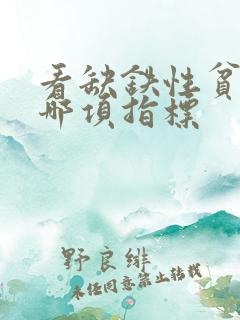 看缺铁性贫
哪项指标
野良绯
未经同意禁止转载